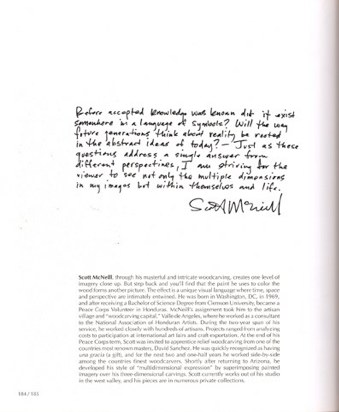 Before accepted knowledge was known did it exist
somewhere in a language of symbols? Will the way
future generations think about reality be rooted
in the abstract ideas of today? — Just as these
questions address a single answer from
different perspectives, I am striving for the
viewer to see not only the multiple dimensions
in my images but within themselves and life.
Scott McNeill
Scott McNeill, through his masterful and intricate woodcarving, creates one level of
imagery close up. But step back and you'll find that the paint he uses to color the
wood forms another picture. The effect is a unique visual language where time, space
and perspective are intimately entwined. He was born in Washington, DC, in 1969,
and after receiving a Bachelor of Science Degree from Clemson University, became a
Peace Corps Volunteer in Honduras. McNeill's assignment took him to the artisan
village and "woodcarving capital," Valle de Angeles, where he worked as a consultant
to the National Association of Honduran Artists. During the two-year span of his
service, he worked closely with hundreds of artisans. Projects ranged from analyzing
costs to participation at international art fairs and craft exportation. At the end of his
Peace Corps term, Scott was invited to apprentice relief woodcarving from one of the
countries most renown masters, David Sanchez. He was quickly recognized as having
una gracia (a gift), and for the next two and one-half years he worked side-by-side
among the countries finest woodcarvers. Shortly after returning to Arizona, he
developed his style of "multidimensional expression" by superimposing painted
imagery over his three-dimensional carvings. Scott currently works out of his studio
in the west valley, and his pieces are in numerous private collections.
184 / 185